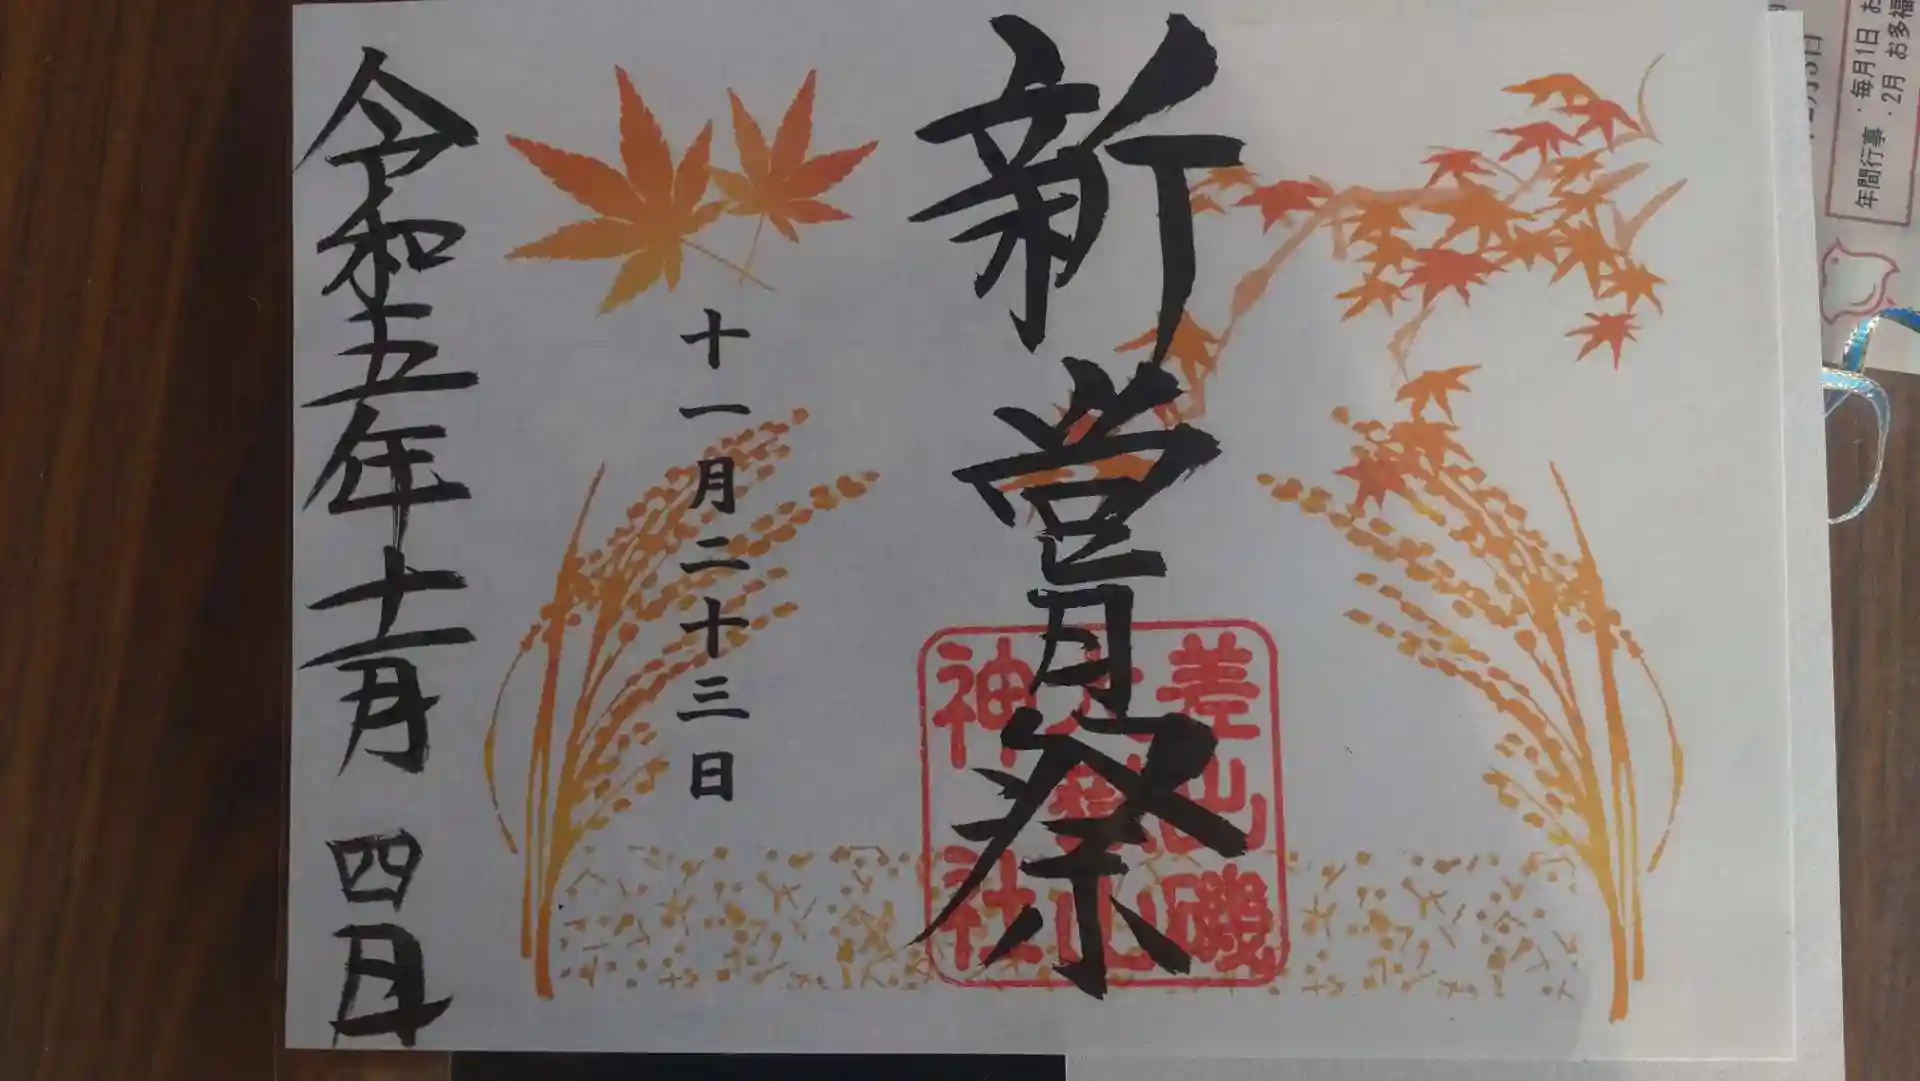 新嘗祭
差出磯
大嶽山
神社
十一月二十三日
令和五年十一月 四日
年間行事 ・毎月1日 お
・2月 お多福